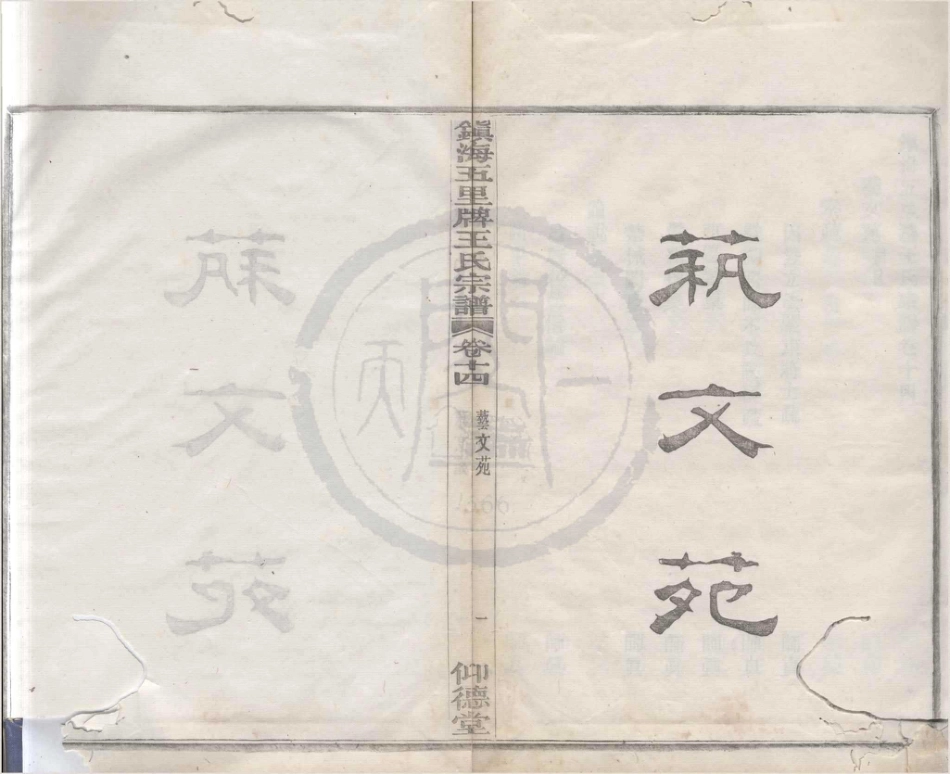 蓺文苑
鎮海五里牌王氏宗譜
卷十四
藝文苑
一
仰德堂